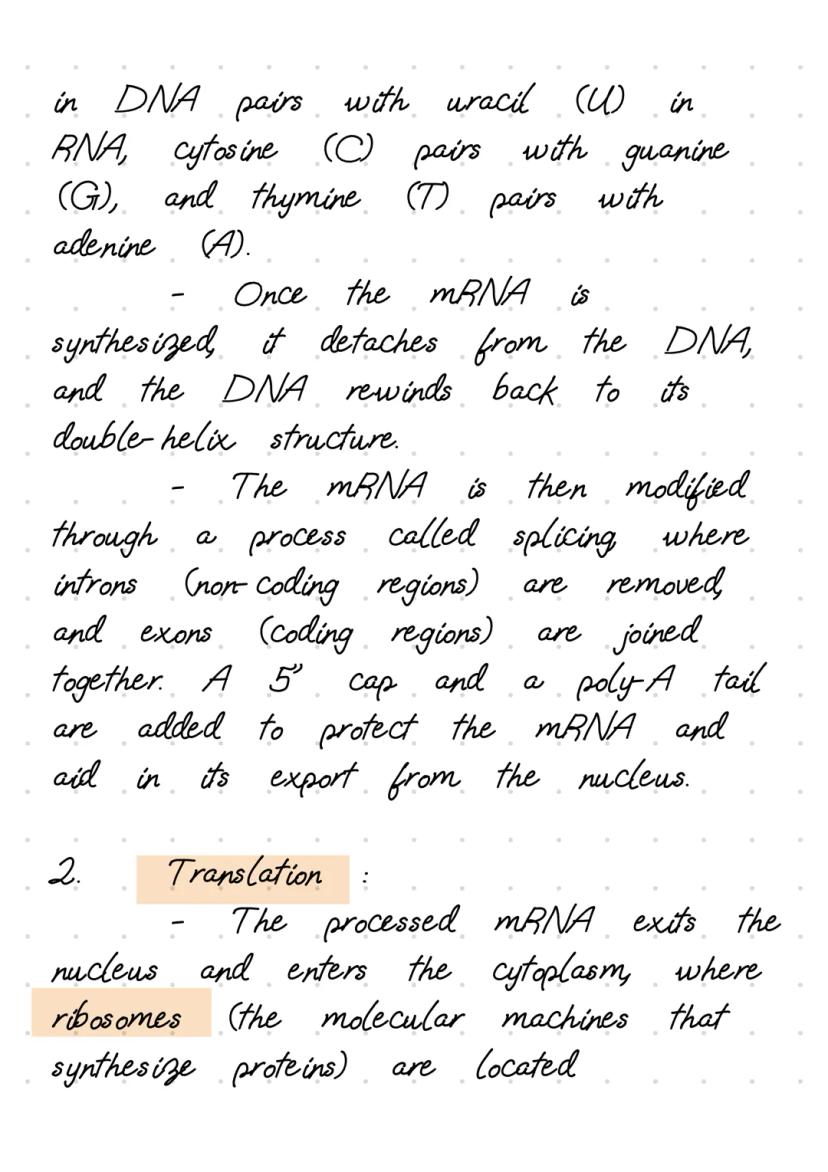 in DNA pairs with uracil (U) in
RNA, cytosine (C) pairs with guanine
(G), and thymine (T) pairs with
adenine (A).
- Once the mRNA is
synthesized, it detaches from the DNA,
and the DNA rewinds back to its
double-helix structure.
- The mRNA is then modified
through a process called splicing, where
introns (non-coding regions) are removed,
and exons (coding regions) are joined
together. A 5' cap and a poly-A tail
are added to protect the mRNA and
aid in its export from the nucleus.
2. Translation :
- The processed mRNA exits the
nucleus and enters the cytoplasm, where
ribosomes (the molecular machines that
synthesize proteins) are located